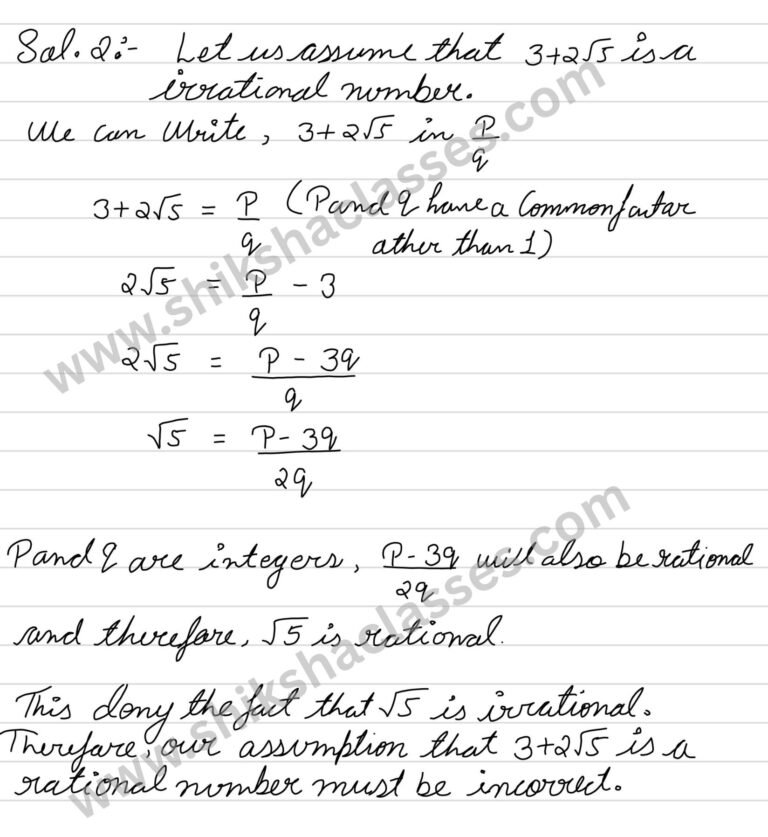 Sol. 2:- Let us assume that 3+2√5 is a
irrational number.
We can Write, 3+2√5 in P/q
3+2√5 = P/q (P and q have a Common factor
other than 1)
2√5 = P/q - 3
2√5 = P - 3q/q
√5 = P - 3q/2q
P and q are integers, P-3q/2q will also be rational
and therefore, √5 is rational.
This deny the fact that √5 is irrational.
Therefore, our assumption that 3+2√5 is a
rational number must be incorrect.
www.shikshaclasses.com
www.shikshaclasses.com